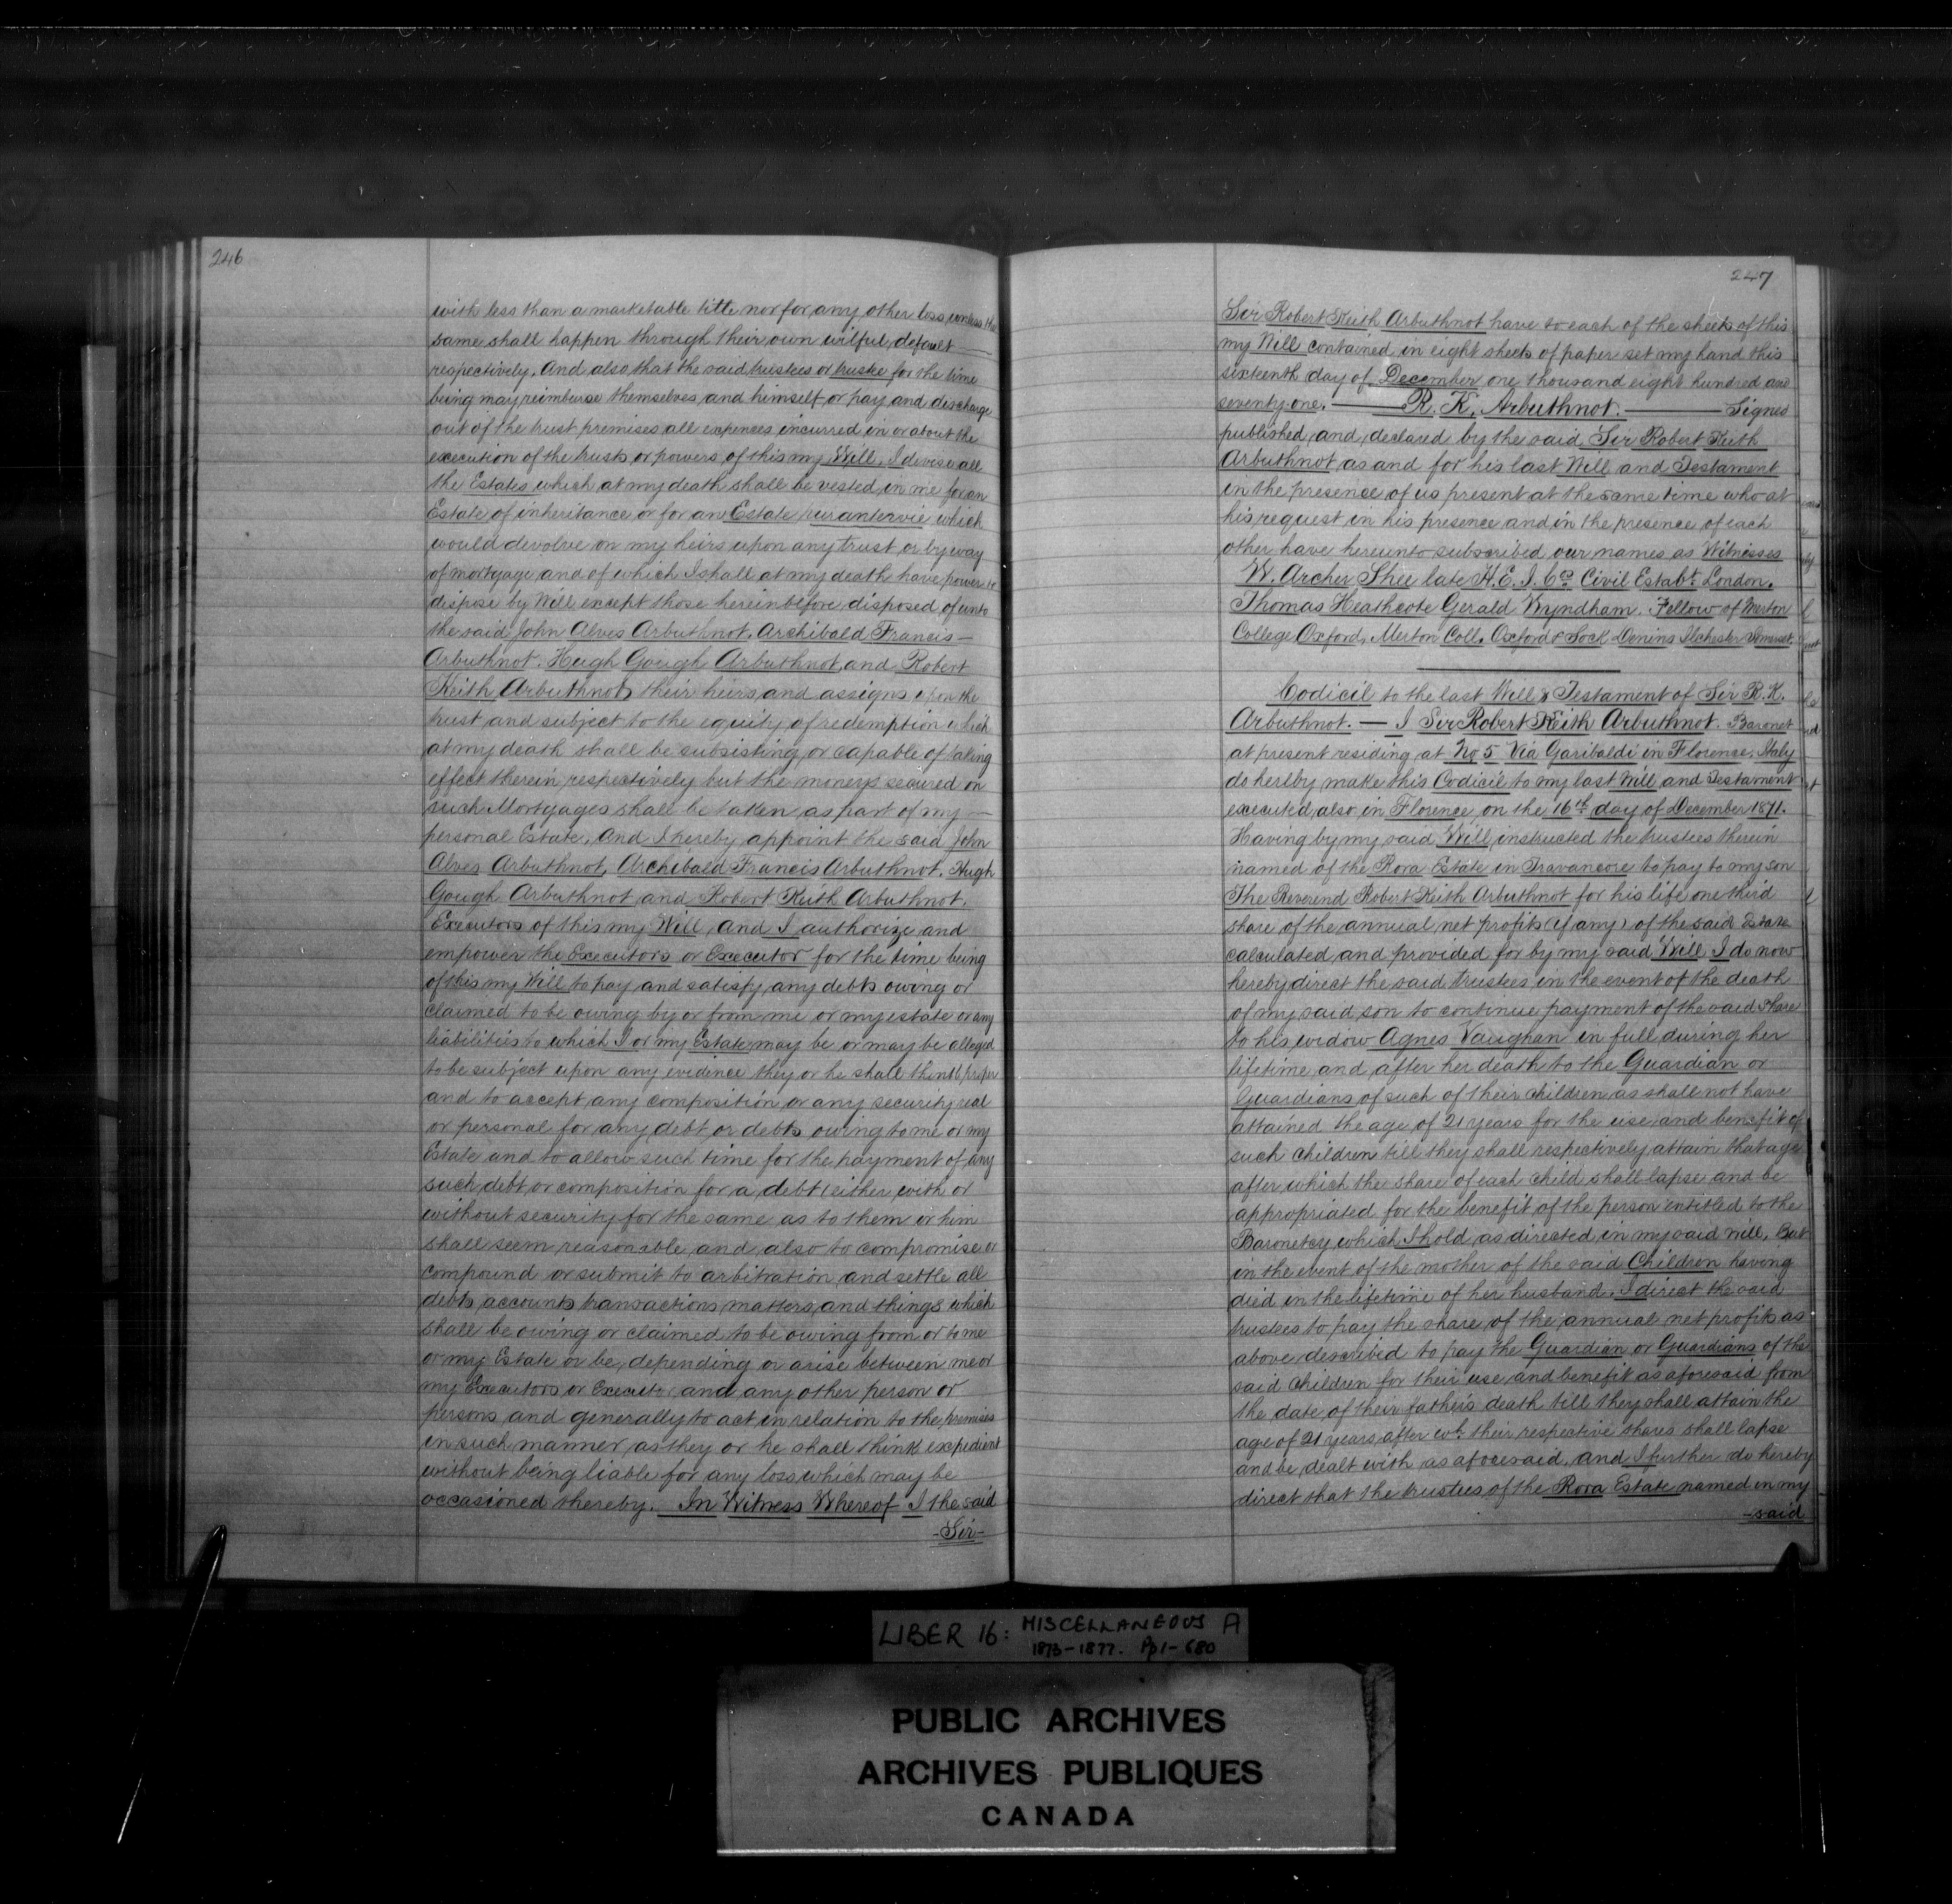 246
with less than a marketable title nor for any other loss unless the
same shall happen through their own wilful default
respectively. And also that the said trustees or trustee for the time
being may reimburse themselves and himself or pay and discharge
out of the trust premises all expences incurred in or about the
execution of the trusts or powers of this my Will. I devise all
the Estates which at my death shall be vested in me for an
Estate of inheritance or for an Estate pur autervie which
would devolve on my heirs upon any trust or by way
of mortgage and of which I shall at my death have power to
dispose by Will except those hereinbefore disposed of unto
the said John Alves Arbuthnot. Archibald Francis —
Arbuthnot. Hugh Gough Arbuthnot, and Robert
Keith Arbuthnot, their heirs and assigns upon the
trust and subject to the equity of redemption which
at my death shall be subsisting or capable of taking
effect therein respectively but the moneys secured on
such Mortgages shall be taken as part of my —
personal Estate, And I hereby appoint the said John
Alves Arbuthnot, Archibald Francis Arbuthnot. Hugh
Gough Arbuthnot and Robert Keith Arbuthnot.
Executors of this my Will, And I authorize and
empower the Executors or Executor for the time being
of this my Will to pay and satisfy any debts owing or
claimed to be owing by or from me or my estate or any
liabilities to which I or my Estate may be or may be alleged
to be subject upon any evidence they or he shall think proper
and to accept any composition or any security real
or personal for any debt or debts owing to me or my
Estate and to allow such time for the payment of any
such debt or composition for a debt either with or
without security for the same as to them or him
shall seem reasonable and also to compromise or
compound or submit to arbitration and settle all
debts accounts transactions matters and things which
shall be owing or claimed to be owing from or to me
or my Estate or be depending or arise between me or
my Executors or Executor and any other person or
persons and generally to act in relation to the premises
in such manner as they or he shall think expedient
without being liable for any loss which may be
occasioned thereby. In Witness Whereof I the said
-Sir-
247
Sir Robert Keith Arbuthnot have to each of the sheets of this
my Will contained in eight sheets of paper set my hand this
sixteenth day of December one thousand eight hundred and
seventy one. — R. K. Arbuthnot. — Signed
published and declared by the said Sir Robert Keith
Arbuthnot as and for his last Will and Testament
in the presence of us present at the same time who at
his request in his presence and in the presence of each
other have hereunto subscribed our names as Witnesses
W. Archer Shee late H. E. I. Cos Civil Estabt. London.
Thomas Heathcote Gerald Wyndham. Fellow of Merton
College Oxford, Merton Coll. Oxford & Sock Denins Ilchester Somerset.
Codicil to the last Will & Testament of Sir R. K.
Arbuthnot. — I Sir Robert Keith Arbuthnot. Baronet
at present residing at No 5 Via Garibaldi in Florence. Italy
do hereby make this Codicil to my last Will and Testament
executed also in Florence on the 16th day of December 1871.
Having by my said Will instructed the trustees therein
named of the Rora Estate in Travancore to pay to my son
The Reverend Robert Keith Arbuthnot for his life one third
share of the annual net profits (if any) of the said Estate
calculated and provided for by my said Will I do now
hereby direct the said trustees in the event of the death
of my said son to continue payment of the said Share
to his widow Agnes Vaughan in full during her
lifetime and after her death to the Guardian or
Guardians of such of their children as shall not have
attained the age of 21 years for the use and benefit of
such children till they shall respectively attain that age
after which the share of each child shall lapse and be
appropriated for the benefit of the person entitled to the
Baronetcy which I hold as directed in my said will. But
in the event of the mother of the said Children having
died in the lifetime of her husband. I direct the said
trustees to pay the share of the annual net profits as
above described to pay the Guardian or Guardians of the
said children for their use and benefit as aforesaid from
the date of their father's death till they shall attain the
age of 21 years after wh. their respective shares shall lapse
and be dealt with as aforesaid, and I further do hereby
direct that the trustees of the Rora Estate named in my
-said
LIBER 16: MISCELLANEOUS A
1873-1877. Pp 1-680
PUBLIC ARCHIVES
ARCHIVES PUBLIQUES
CANADA